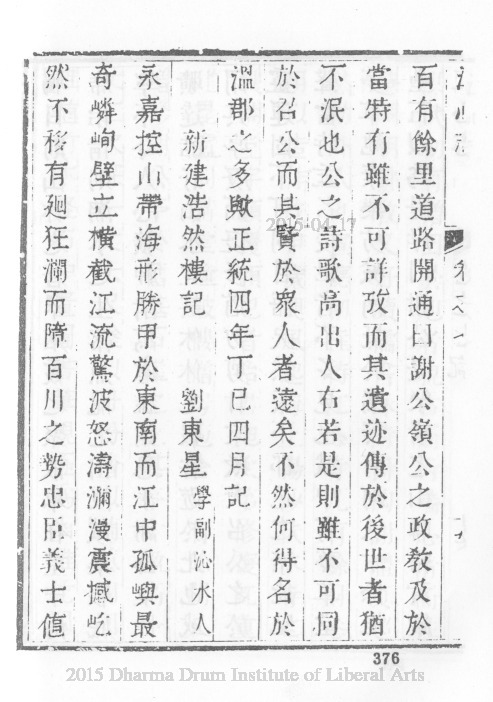 江心志
卷之十
百有餘里道路開通曰謝公嶺公之政敎及於
當時有雖不可詳攷而其遺迹傳於後世者猶
不泯也公之詩歌高出人右若是則雖不可同
於召公而其賢於衆人者遠矣不然何得名於
溫郡之多歟正統四年丁巳四月記
新建浩然樓記 劉東星 學副沁水人
永嘉控山帶海形勝甲於東南而江中孤嶼最
奇嶙峋壁立橫截江流驚波怒濤瀰漫震撼屹
然不移有廻狂瀾而障百川之勢忠臣義士値
376
2015-04-17
2015 Dharma Drum Institute of Liberal Arts